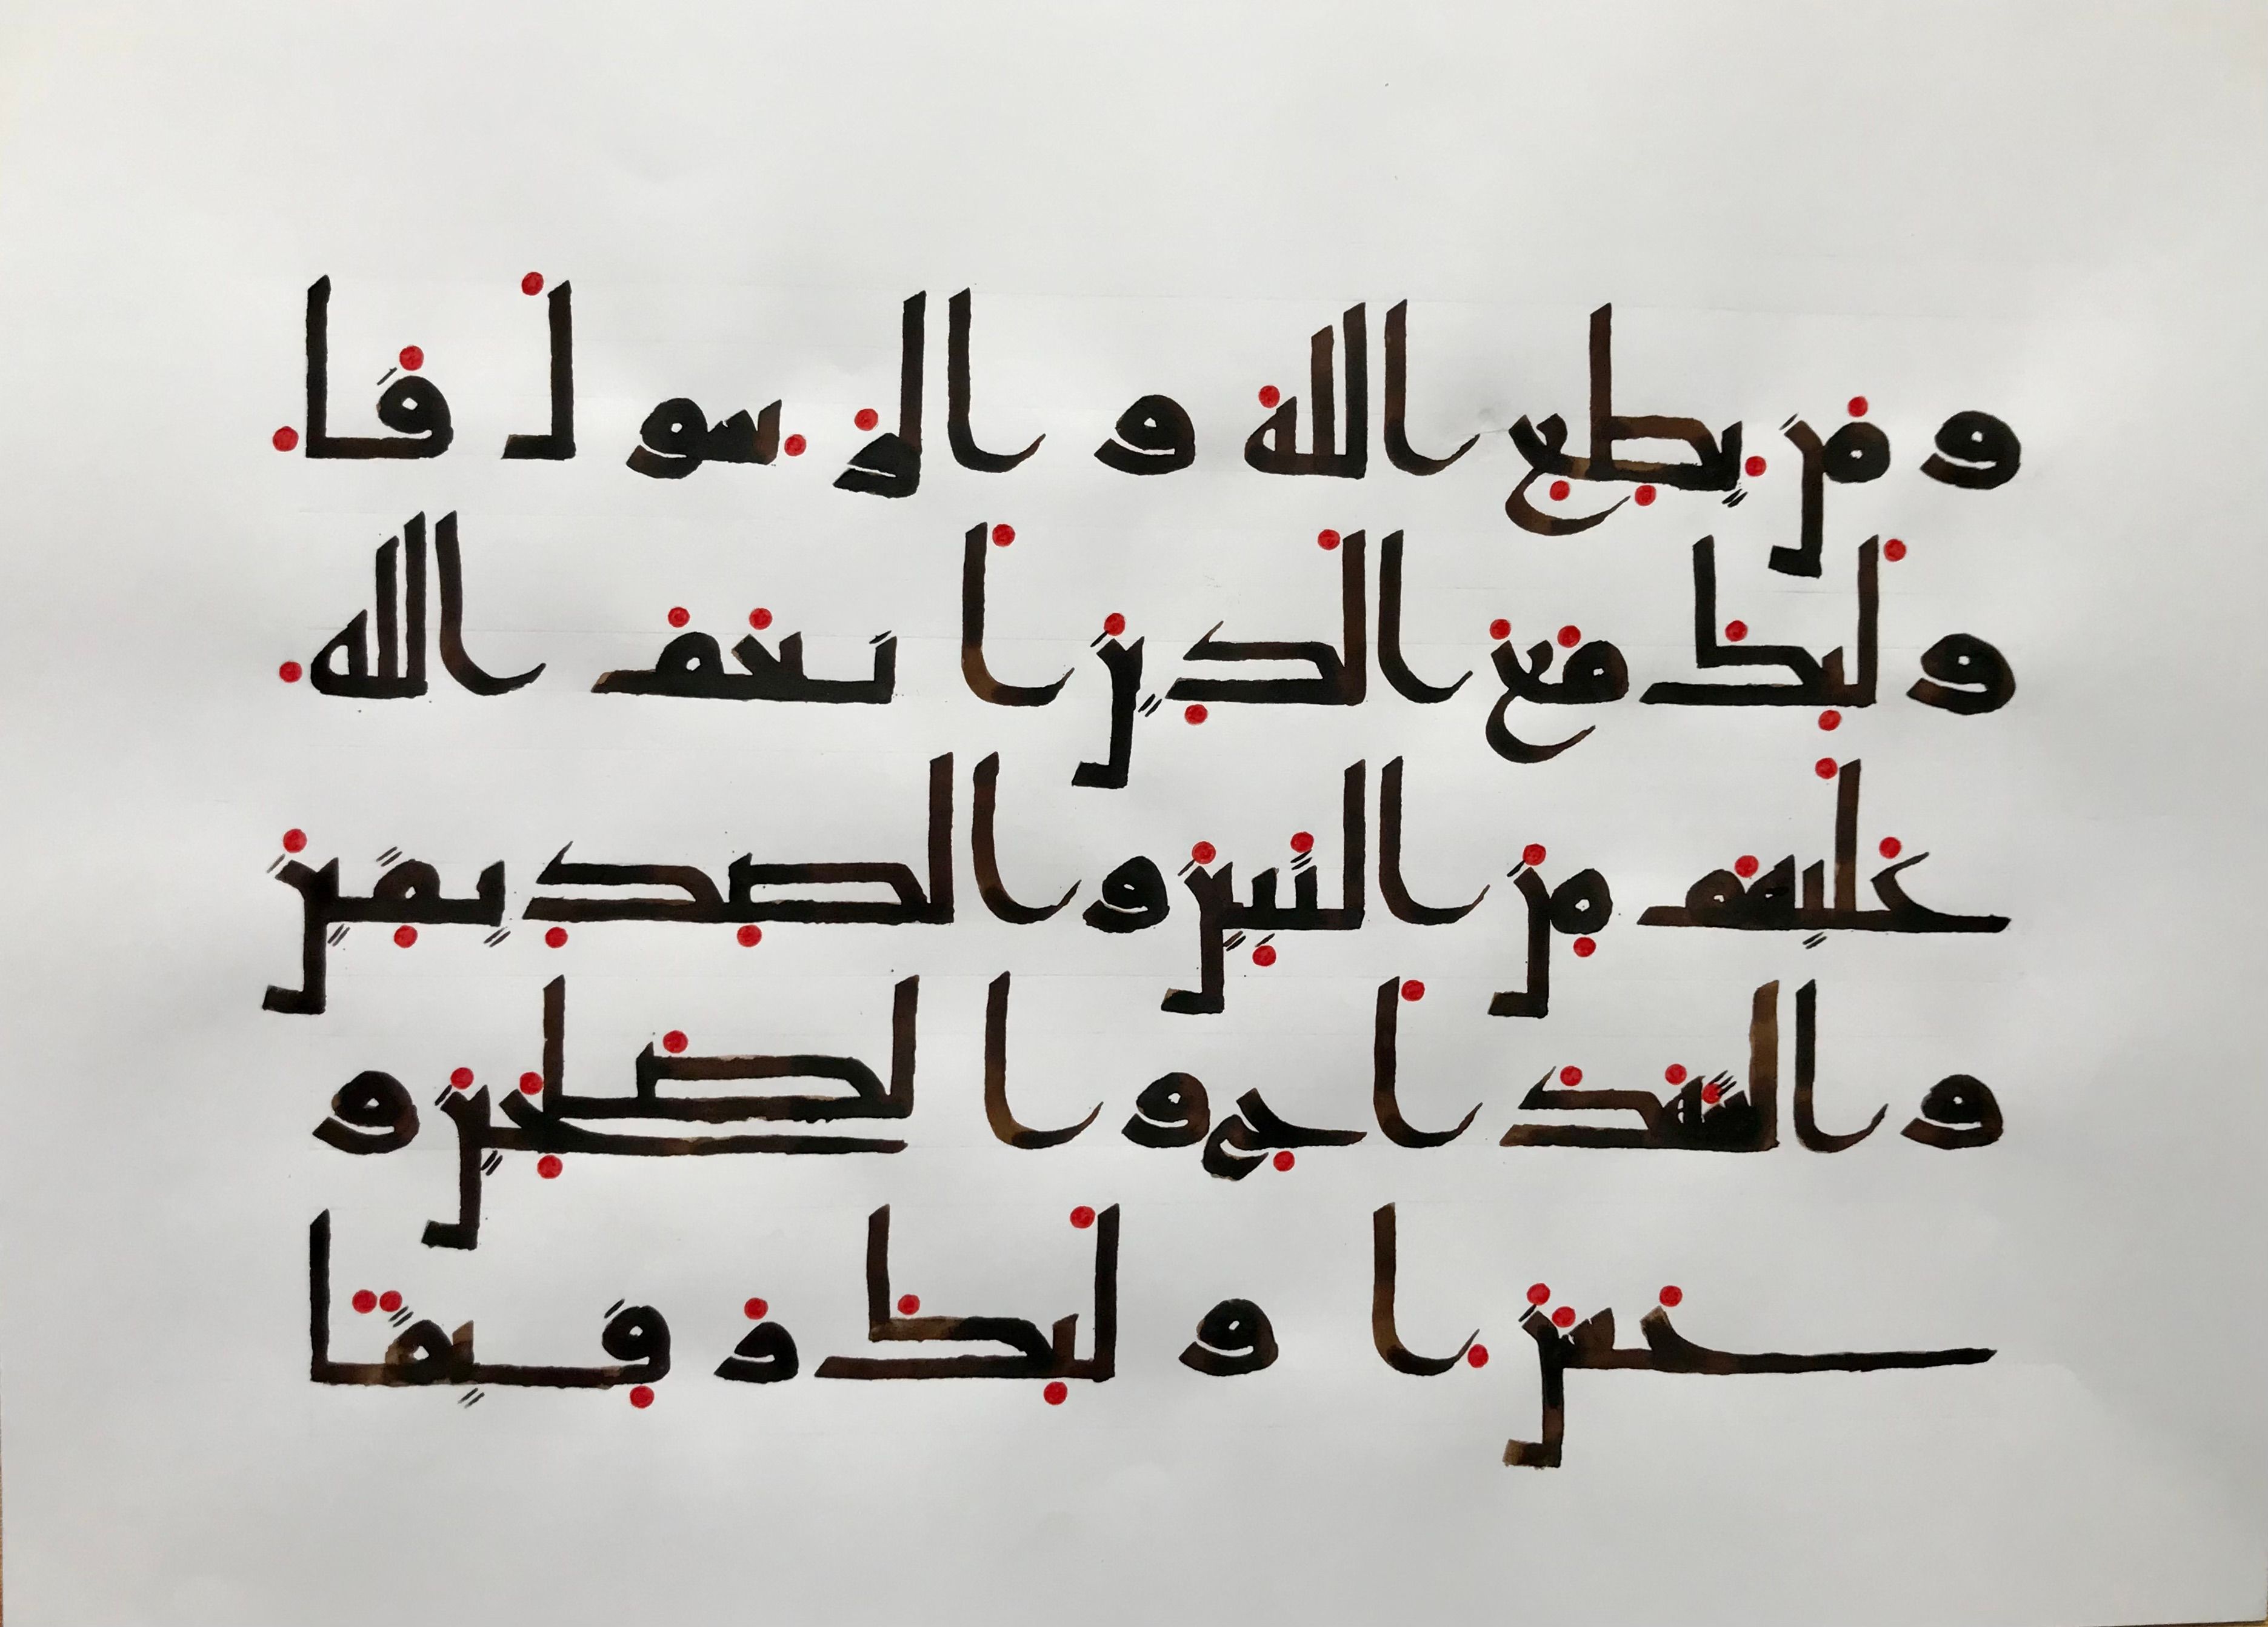 ومن يطع الله والرسول فا
ولئك مع الذين انعم الله
عليهم من النبين والصديقين
والشهداء والصلحين و
حسن اولئك رفيقا